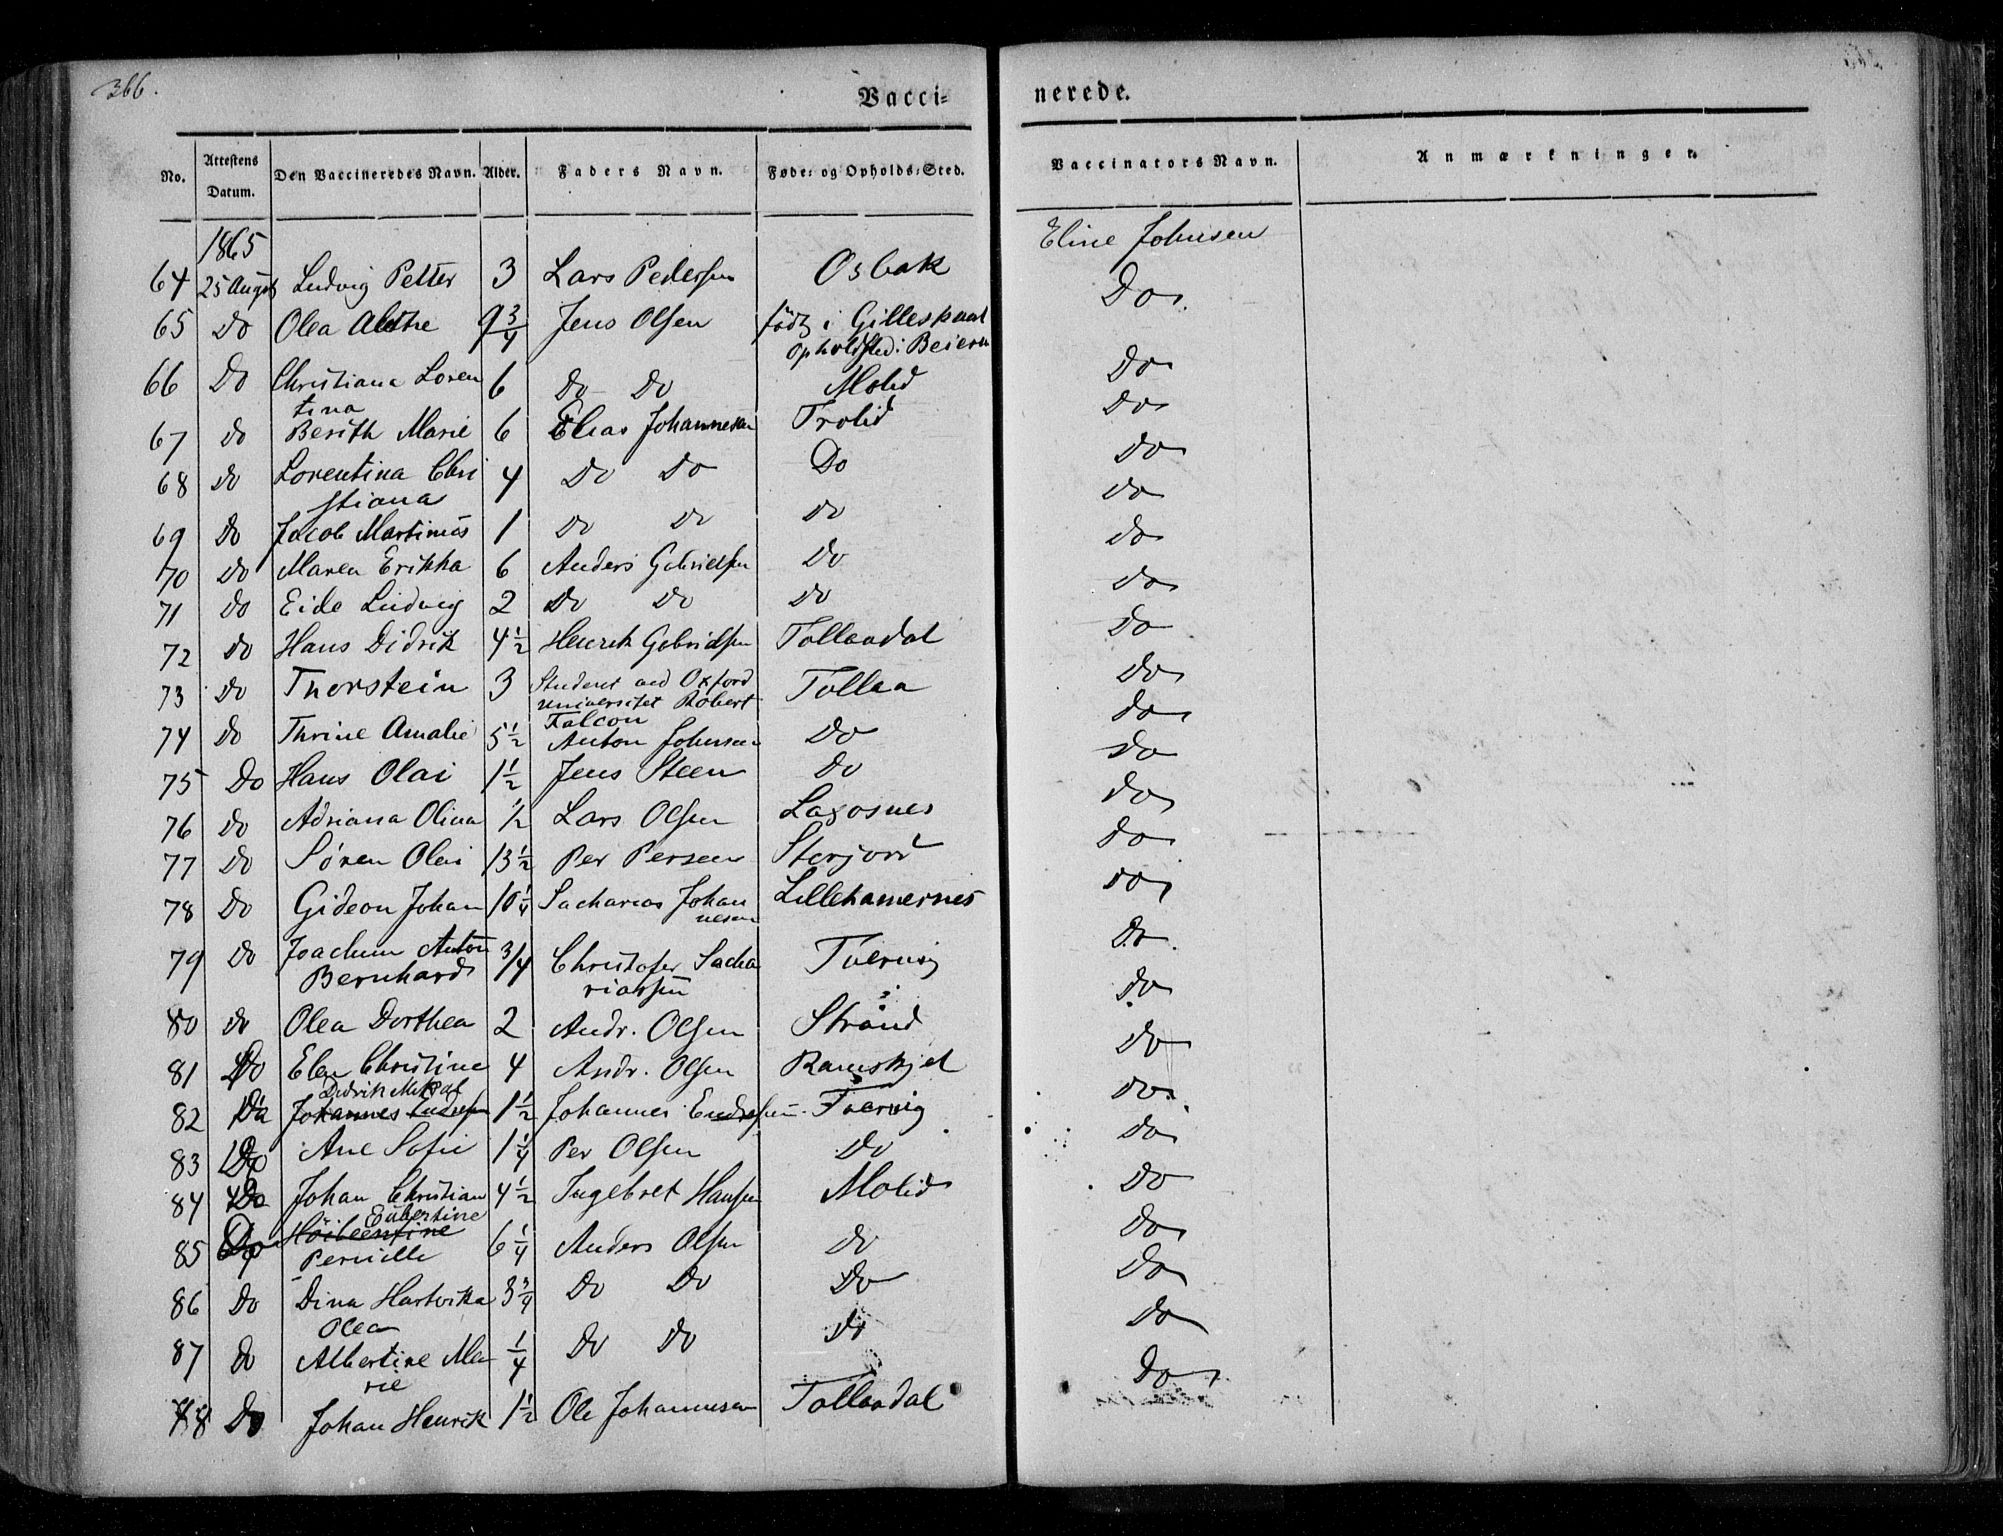 366.
Vacci- nerede.
No. Attestens Datum. Den Vaccineredes Navn. Alder. Faders Navn. Føde- og Opholds-Sted. Vaccinators Navn. Anmærkninger.
1865 Eline Johnsen
64 25 August Ludvig Petter 3 Lars Pedersen Osbak Do
65 Do Olea Alethe 9 3/4 Jens Olsen född i Gilleskaal
opholdsted i Beiern Do
66 Do Christiana Loren 6 Do Do Molid Do
tina
67 do Berith Marie 6 Elias Johannesen Trolid do
68 do Lorentina Chri 4 Do Do Do do
stiana
69 Do Jacob Martinus 1 Do Do do do
70 Do Maren Erikka 6 Anders Gabrielsen Do do
71 do Eide Ludvig 2 Do Do do do
72 do Hans Didrik 4 1/2 Henrik Gabrielsen Tollaadal do
73 do Thorstein 3 Student ved Oxford Tollaa Do
universitet Robert
Falcon
74 do Thrine Amalie 5 1/2 Anton Johnsen Do do
75 Do Hans Olai 1 1/2 Jens Steen do do
76 do Adriana Olina 1/2 Lars Olsen Laxosnes do
77 Do Søren Olai 13 1/2 Per Persen Storjord do
78 Do Gideon Johan 10 1/4 Sacharias Johan Lillehamernes do
nesen
79 do Joachim Anton 3/4 Christofer Sacha Tvervig Do
Bernhard riassen
80 do Olea Dorthea 2 Andr. Olsen Strand do
81 Do Elen Christine 4 Andr. Olsen Ramskjel do
Didrik
82 Do Johannes Endresen 1 1/2 Johannes Endresen Tvervig do
83 Do Ane Sofie 1 1/4 Per Olsen Do do
84 Do Johan Christian 4 1/2 Ingebret Hansen Molid do
Eubertine
85 Do Pernille 6 1/4 Anders Olsen do do
86 Do Dina Hartvika 3 3/4 Do Do Do Do
Olea
87 Do Albertine Ma 1/4 Do Do do do
rie
88 Do Johan Henrik 1 1/2 Ole Johannesen Tollaadal Do